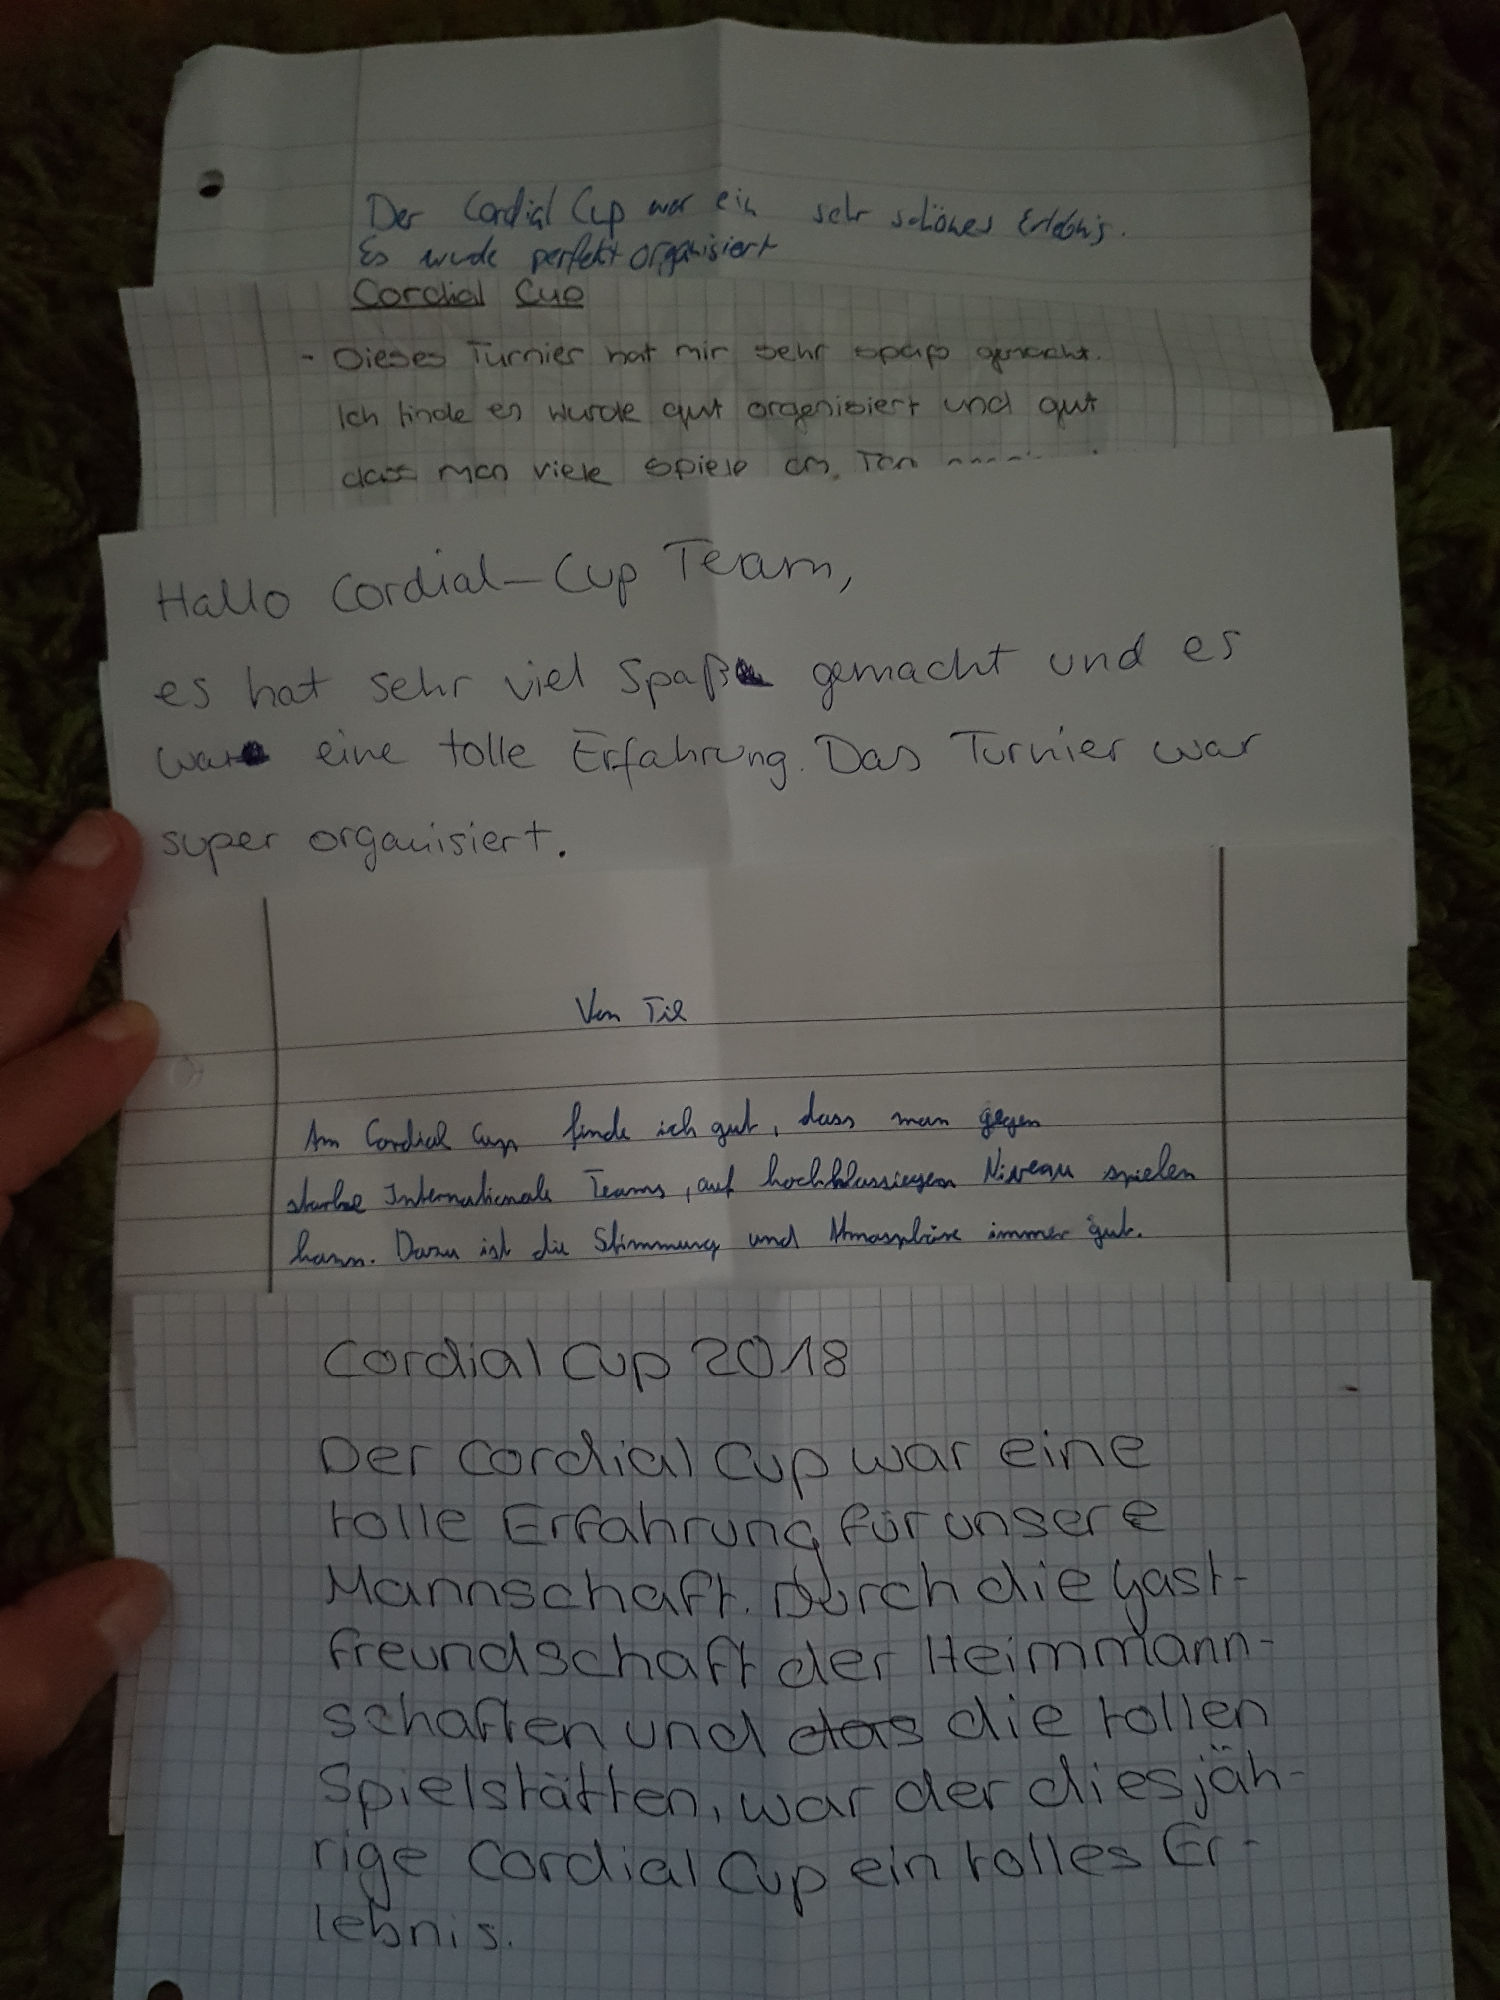 Der Cordial Cup war ein sehr schönes Erlebnis.
Es wurde perfekt organisiert
Cordial Cup
- Dieses Turnier hat mir sehr spaß gemacht.
Ich finde es wurde gut organisiert und gut
dass man viele spiele am Tag
Hallo Cordial-Cup Team,
es hat sehr viel Spaß gemacht und es
war eine tolle Erfahrung. Das Turnier war
super organisiert.
Von Til
Am Cordial Cup finde ich gut, dass man gegen
starke Internationale Teams, auf hochklassiegen Niveau spielen
kann. Dazu ist die Stimmung und Atmosphäre immer gut.
Cordial Cup 2018
Der Cordial Cup war eine
tolle Erfahrung für unsere
Mannschaft. Durch die Gast-
freundschaft der Heimmann-
schaften und das die tollen
Spielstätten, war der diesjäh-
rige Cordial Cup ein tolles Er-
lebnis.